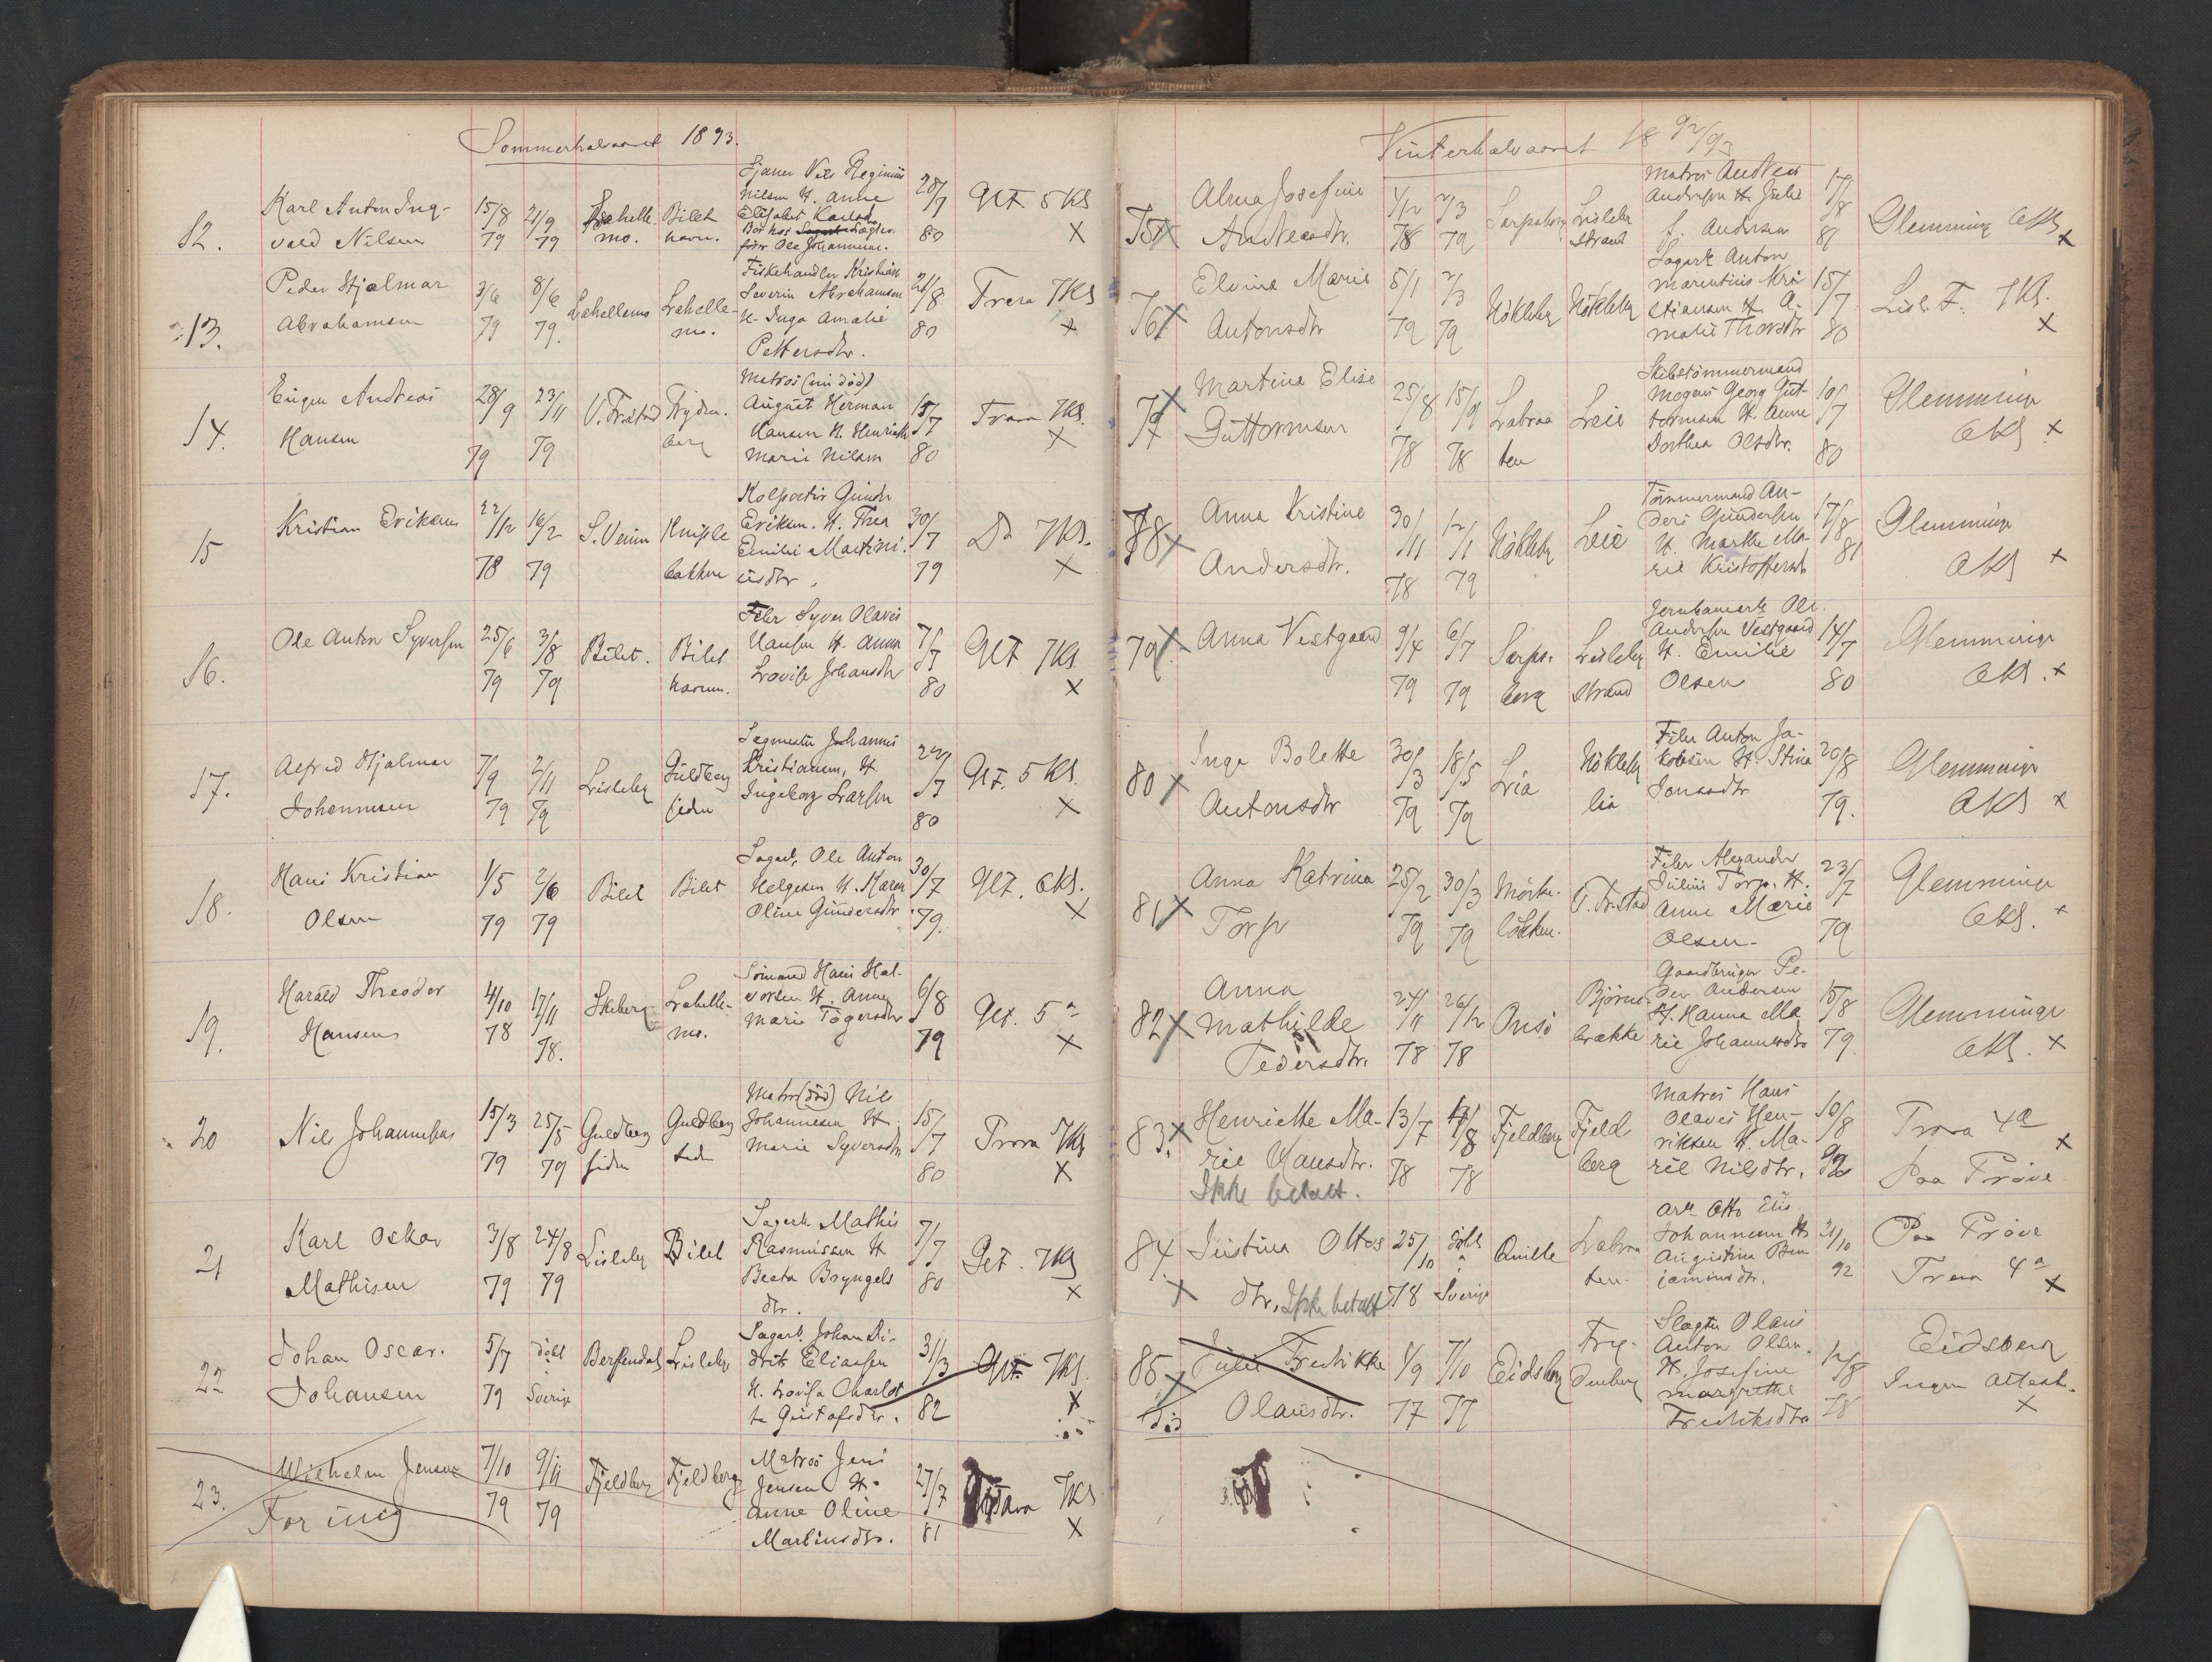 Sommerhalvaaret 1893.
12.
Karl Anton Ing-
vald Nilsen
15/8 79
21/9 79
Lahelle
mo.
Bilet
havn.
Sjauer Nils Reginius
Nilsen H. Anne
Elisabet Karlsd.
Bor hos
Ole Johannesen.
28/7 80
Glf 5 Kl
x
13.
Peder Hjalmar
Abrahamsen
3/6 79
8/6 79.
Lahellemo
Lahelle-
mo.
Fiskehandler Kristian
Severin Abrahamsen
H. Inga Amalie
Pettersdtr.
21/8 80
Trara 7Kl
x
14.
Eugen Andreas
Hansen
28/9 79
23/11 79
V. Fr.stad
Trygden.
berg
Matros (nu død)
August Herman
Hansen H. Henriette
Marie Nilsen
15/7 80
Trara 7Kl.
x
15
Kristian Eriksen
22/12 78
16/2 79
S. Venin
Kniple
bakken
Kolportør Gunder
Eriksen. H. Thea
Emilie Martini-
usdtr.
30/7 79
Do 7Kl.
x
16.
Ole Anton Syversen
25/6 79
3/8 79
Bilet.
Bilet
havnen.
Filer Syver Olaves
Hansen H. Anna
Lovise Johansdtr
7/7 80
Glf 7Kl
x
17.
Alfred Hjalmar
Johannesen
7/9 79
2/11 79
Lisleby
Guldberg
siden
Sagmester Johannes
Kristiansen, H.
Ingeborg Larsen
22/7 80
Glf. 5 Kl.
x
18.
Hans Kristian
Olsen
1/5 79
2/6 79
Bilet
Bilet
Sagarb. Ole Anton
Helgesen H. Karen
Oline Gundersdtr
30/7 79.
Glf. 6Kl.
x
19.
Harald Theodor
Hansen
4/10 78
17/11 78.
Skeberg
Lahelle-
mo.
Sømand Hans Hal-
vorsen H. Anne
Marie Tøgersdtr
6/8 79
Glf. 5 a
x
20
Nils Johannesen
15/3 79
25/5 79
Guldberg
siden
Guldberg
siden
Matros (død) Nils
Johannesen H.
Marie Syversdtr
15/7 80
Trara 7Kl
x
21
Karl Oskar
Mathisen
3/8 79
24/8 79
Lisleby
Bilet
Sagarb. Mathis
Rasmussen H
Beata Bryngels
dtr.
7/7 80
Glf. 7Kl
x
22
Johan Oscar.
Johansen
5/7 79
døbt
Sverige
Berfendal
Lisleby
Sagarb. Johan Di-
drik Eliassen
H. Lovisa Charlot
te Gustafsdtr.
31/3 82
Glf. 7Kl.
x
23.
Wilhelm Jensen
For ung
7/10 79
9/11 79
Fjeldberg
Fjeldberg
Matros Jens
Jensen H.
Anne Oline
Martinsdtr.
27/7 81
Trara 7Kl
x
Vinterhalvaaret 18 92/93
75 x
Alma Josefine
Andreasdtr.
1/12 78
2/3 79
Sarpsborg
Lisleby
strand
Matros Andreas
Andersen H Julie
f. Andersen
17/8 81
Glemminge 6Kl
x
76 x
Elvine Marie
Antonsdtr
5/1 79
2/3 79
Nökleby
Nökleby
Sagarb Anton
Marentius Kri-
stiansen H. A-
malie Thorsdtr
15/7 80
Lisl. F. 7Kl.
x
77 x
Martina Elise
Guttormsen
25/8 78
15/9 78
Labraa
ten
Leie
Skibstømmermand
Mogens Georg Gut-
tormsen H. Anne
Dorthea Olsdtr.
10/7 80
Glemminge
6Kl x
78 x
Anna Kristine
Andersdtr.
30/11 78
12/1 79
Nökleby
Leie
Tømmermand An-
ders Gundersen
H. Marthe Ma-
rie Kristoffersdtr
17/8 81
Glemminge
6Kl x
79. x
Anna Vestgaard
9/4 79
6/7 79
Sarps-
borg
Lisleby
strand
Jernbanearb Ole
Andersen Vestgaard
H. Emilie
Olsen
14/7 80
Glemminge
6Kl. x
80 x
Inga Bolette
Antonsdtr
30/3 79
18/5 79
Lia
Nökleby
lia
Filer Anton Ja-
kobsen H. Stina
Jonasdtr
20/8 79.
Glemminge
6Kl x
81 x
Anna Katrina
Torp
25/2 79
30/3 79
Mørke-
løkken.
V. Fr.stad
Filer Alexander
Julius Torp. H.
Anne Marie
Olsen-
23/7 79
Glemminge
6Kl. x
82 x
Anna
Mathilde
Pedersdtr.
24/11 78
26/12 78
Onsø
Bjørne-
brække
Gaardbruger Pe-
der Andersen
H. Hanna Ma
rie Johannesdtr
15/8 79.
Glemminge
6Kl. x
83. x
Henriette Ma-
rie Hansdtr.
Ikke betalt.
13/7 78
/8 78
Fjeldberg
Fjeld
berg
Matros Hans
Olaves Hen-
riksen H. Ma-
rie Nilsdtr.
10/8 92
Trara 4a
x
Paa Prøve
84.
x
Justina Ottos
dtr. Ikke betalt
25/10 78
døbt
i
Sverige
Qville
Labraa
ten.
Arb. Otto Elis
Johannesen H
Augustina Ben-
jaminsdtr.
31/10 92
Paa Prøve
Trara 4a
x
85 x
død
Julie Fredrikke
Olausdtr.
1/9 77
7/10 77
Eidsberg
Tryg-
denberg
Slagter Olaus
Anton Olsen.
H. Josefine
Margrethe
Fredriksdtr
12/8 78
Eidsberg
Ingen Attest.
x